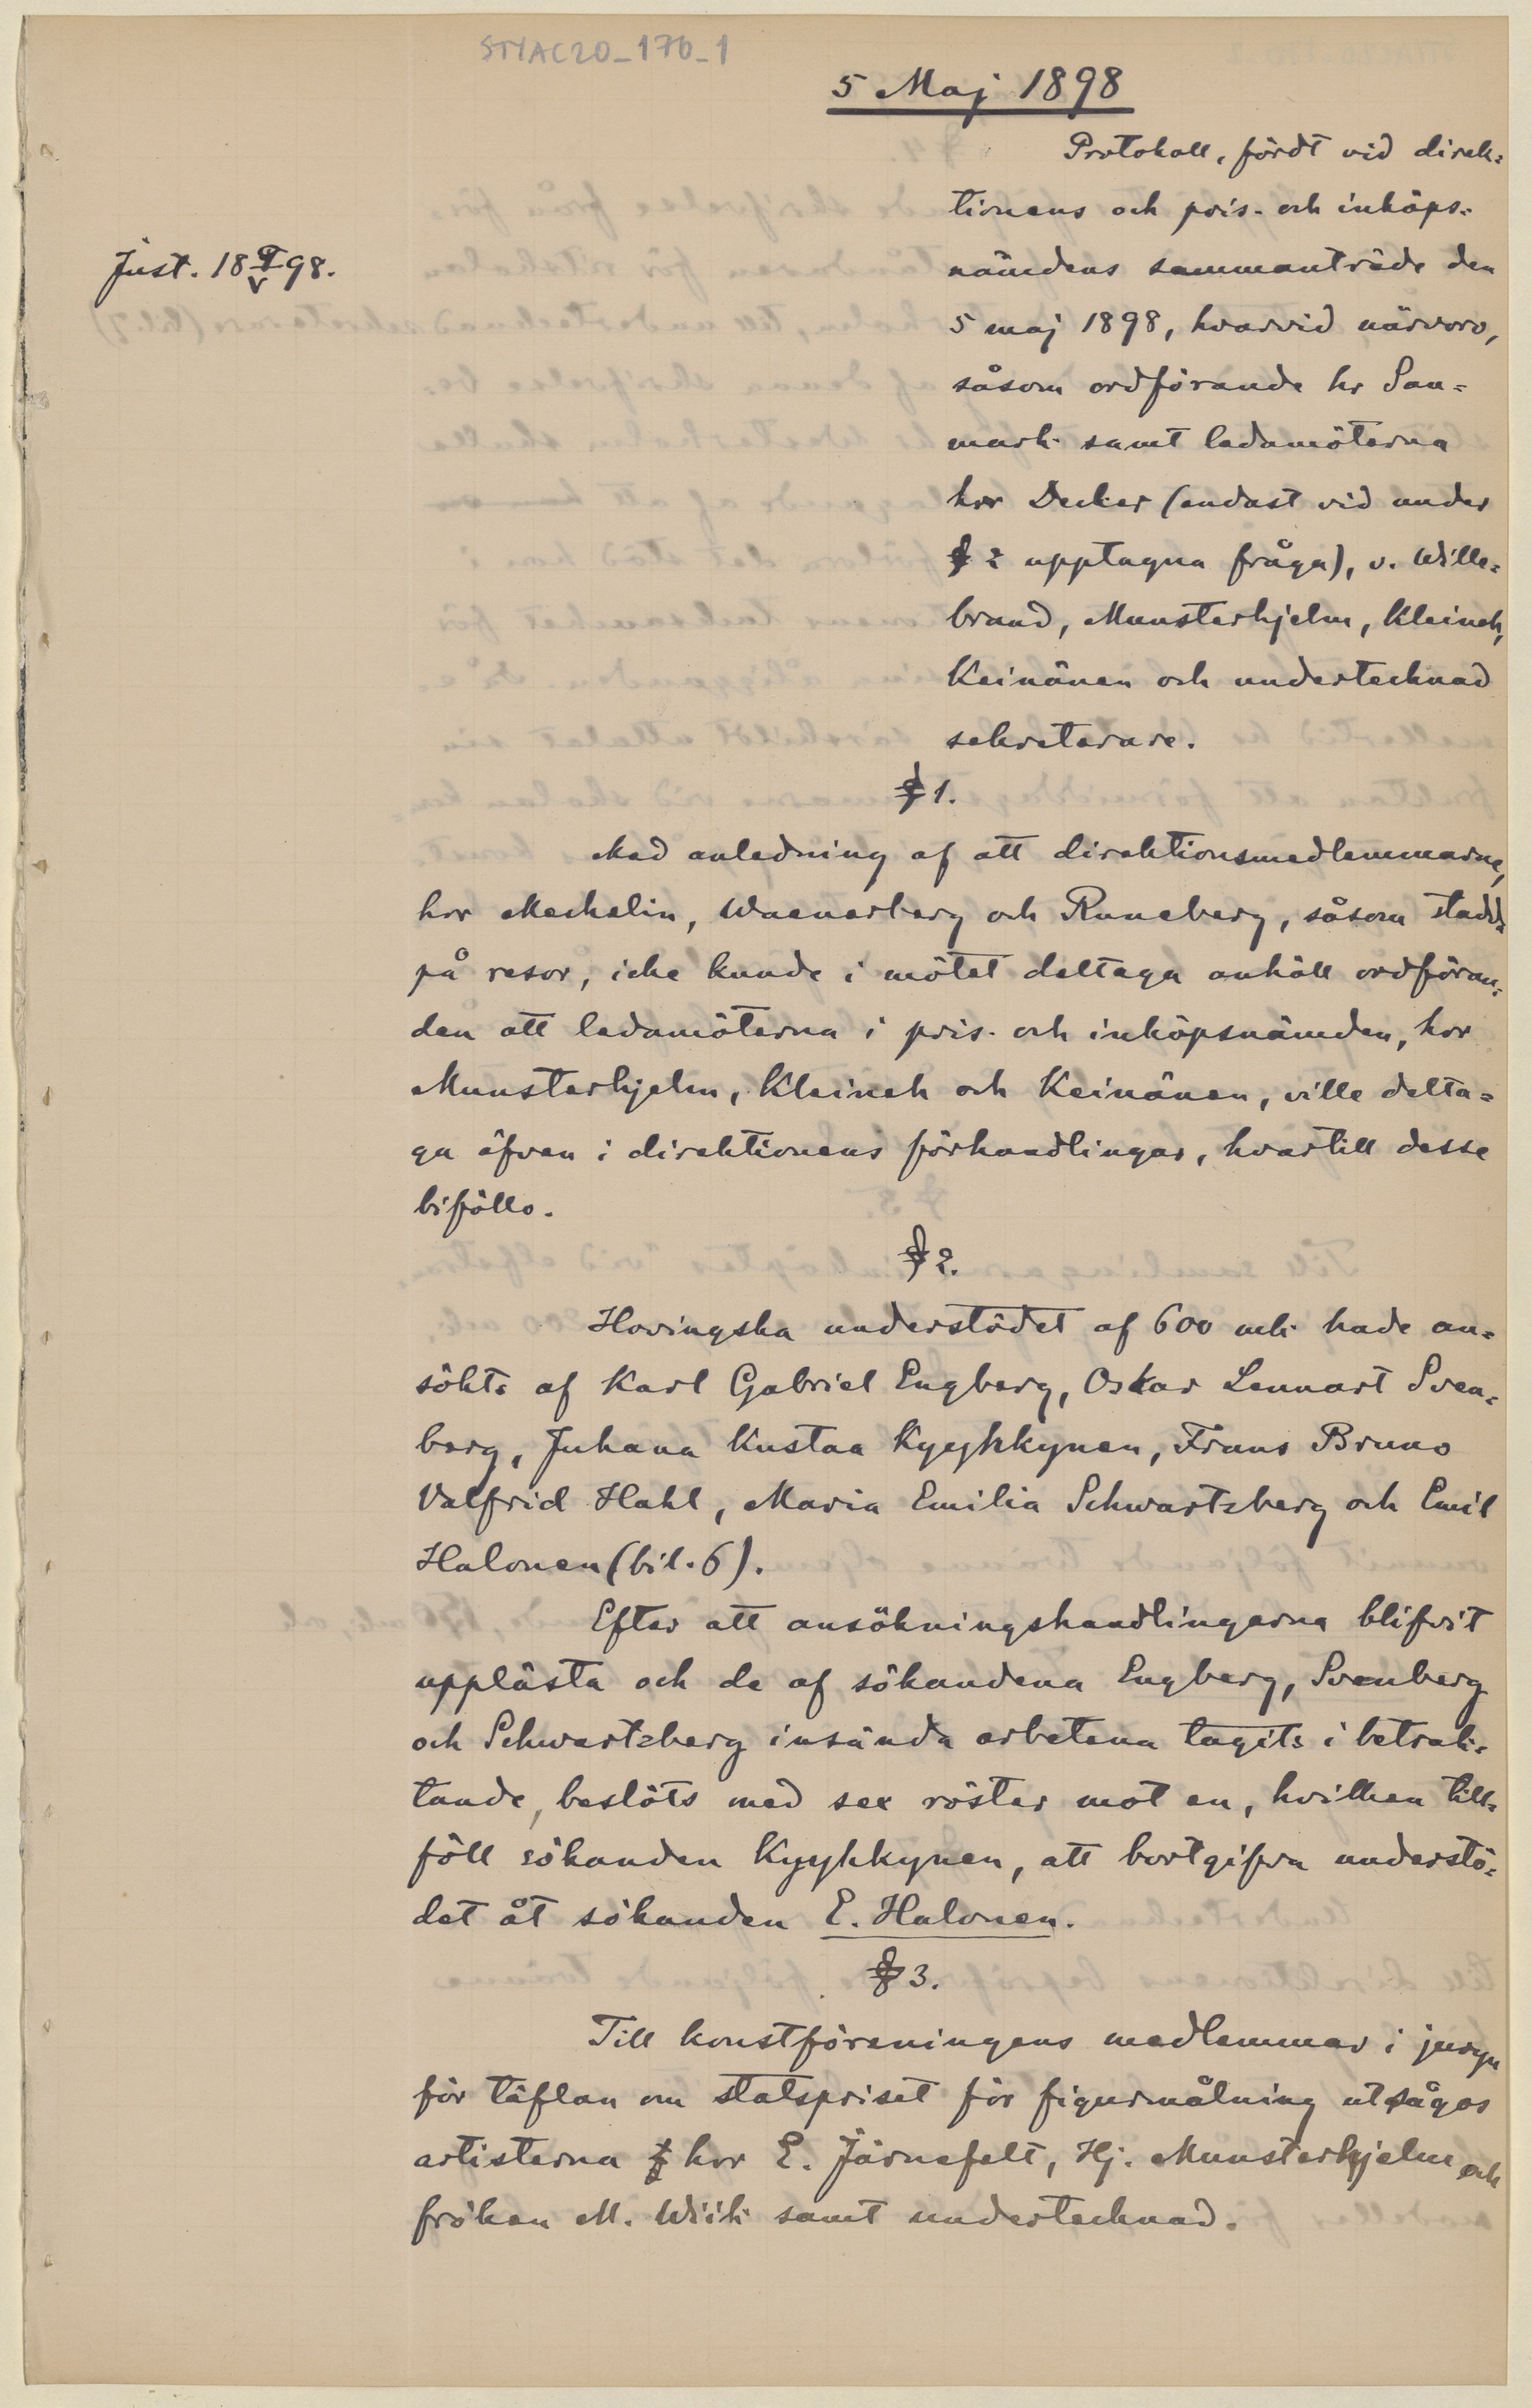 STYAC20_170_1
5 Maj 1898
Protokoll, fördt vid direk=
tionens och pris- och inköps=
nämdens sammanträde den
Just. 18 9/V 98.
5 maj 1898, hvarvid närvoro,
såsom ordförande hr San=
mark samt ledamöterna
hrr Decker (endast vid under
§ 2 upptagna fråga), v. Wille=
brand, Munsterhjelm, Kleineh,
Keinänen och undertecknad
sekreterare.
§ 1.
Med anledning af att direktionsmedlemmarne,
hrr Mechelin, Waenerberg och Runeberg, såsom stadda
på resor, icke kunde i mötet deltaga anhöll ordföran=
den att ledamöterna i pris- och inköpsnämden, hrr
Munsterhjelm, Kleineh och Keinänen, ville delta=
ga äfven i direktionens förhandlingar, hvartill desse
biföllo.
§ 2.
Hovingska understödet af 600 mk hade an=
sökts af Karl Gabriel Engberg, Oskar Lennart Sven=
berg, Juhana Kustaa Kyyhkynen, Frans Bruno
Valfrid Hahl, Maria Emilia Schwartzberg och Emil
Halonen (bil. 6).
Efter att ansökningshandlingarna blifvit
upplästa och de af sökandena Engberg, Svenberg
och Schwartzberg insända arbetena tagits i betrak=
tande, beslöts med sex röster mot en, hvilken till=
föll sökanden Kyyhkynen, att bortgifva understö=
det åt sökanden E. Halonen.
§ 3.
Till konstföreningens medlemmar i juryn
för täflan om statspriset för figurmålning utsågos
artisterna hrr E. Järnefelt, Hj. Munsterhjelm och
fröken M. Wiik samt undertecknad.